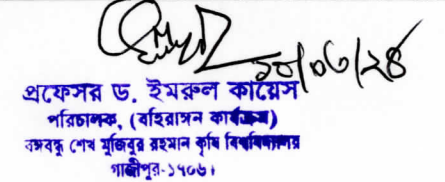 ১০/০৬/২৪
প্রফেসর ড. ইমরুল কায়েস
পরিচালক, (বহিরাঙ্গন কার্যক্রম)
বঙ্গবন্ধু শেখ মুজিবুর রহমান কৃষি বিশ্ববিদ্যালয়
গাজীপুর-১৭০৬।